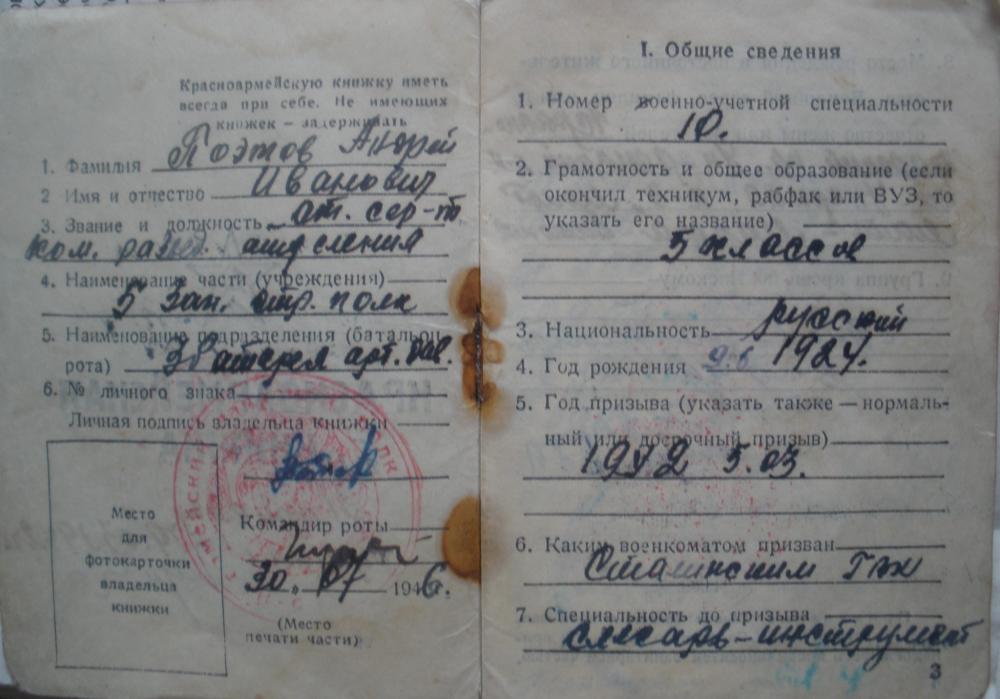 Красноармейскую книжку иметь
всегда при себе. Не имеющих
книжек — задерживать
1. Фамилия Поэтов Андрей
2 Имя и отчество Иванович
3. Звание и должность ст. сер-т
ком. развед. отделения
4. Наименование части (учреждения)
5 Зап. стр. полк
5. Наименование подразделения (батальон
рота) батарея арт. див.
6. № личного знака
Личная подпись владельца книжки
Место
для
фотокарточки
владельца
книжки
Командир роты
30. 07 1946г.
(Место
печати части)
I. Общие сведения
1. Номер военно-учетной специальности
10.
2. Грамотность и общее образование (если
окончил техникум, рабфак или ВУЗ, то
указать его название)
5 классов
3. Национальность русский
4. Год рождения 9.6 1924.
5. Год призыва (указать также — нормаль-
ный или досрочный призыв)
1942 5.03.
6. Каким военкоматом призван
Сталинским
7. Специальность до призыва
слесарь-инструмент
3